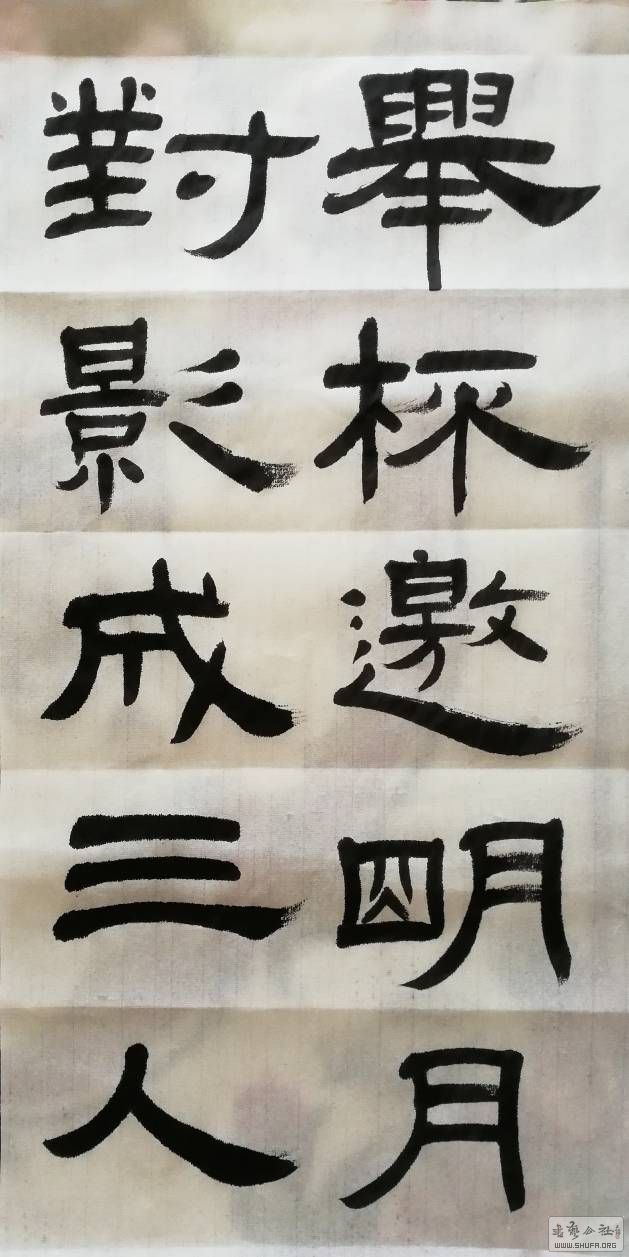 舉杯邀朙月
對影成三人
WWW.SHUFA.ORG